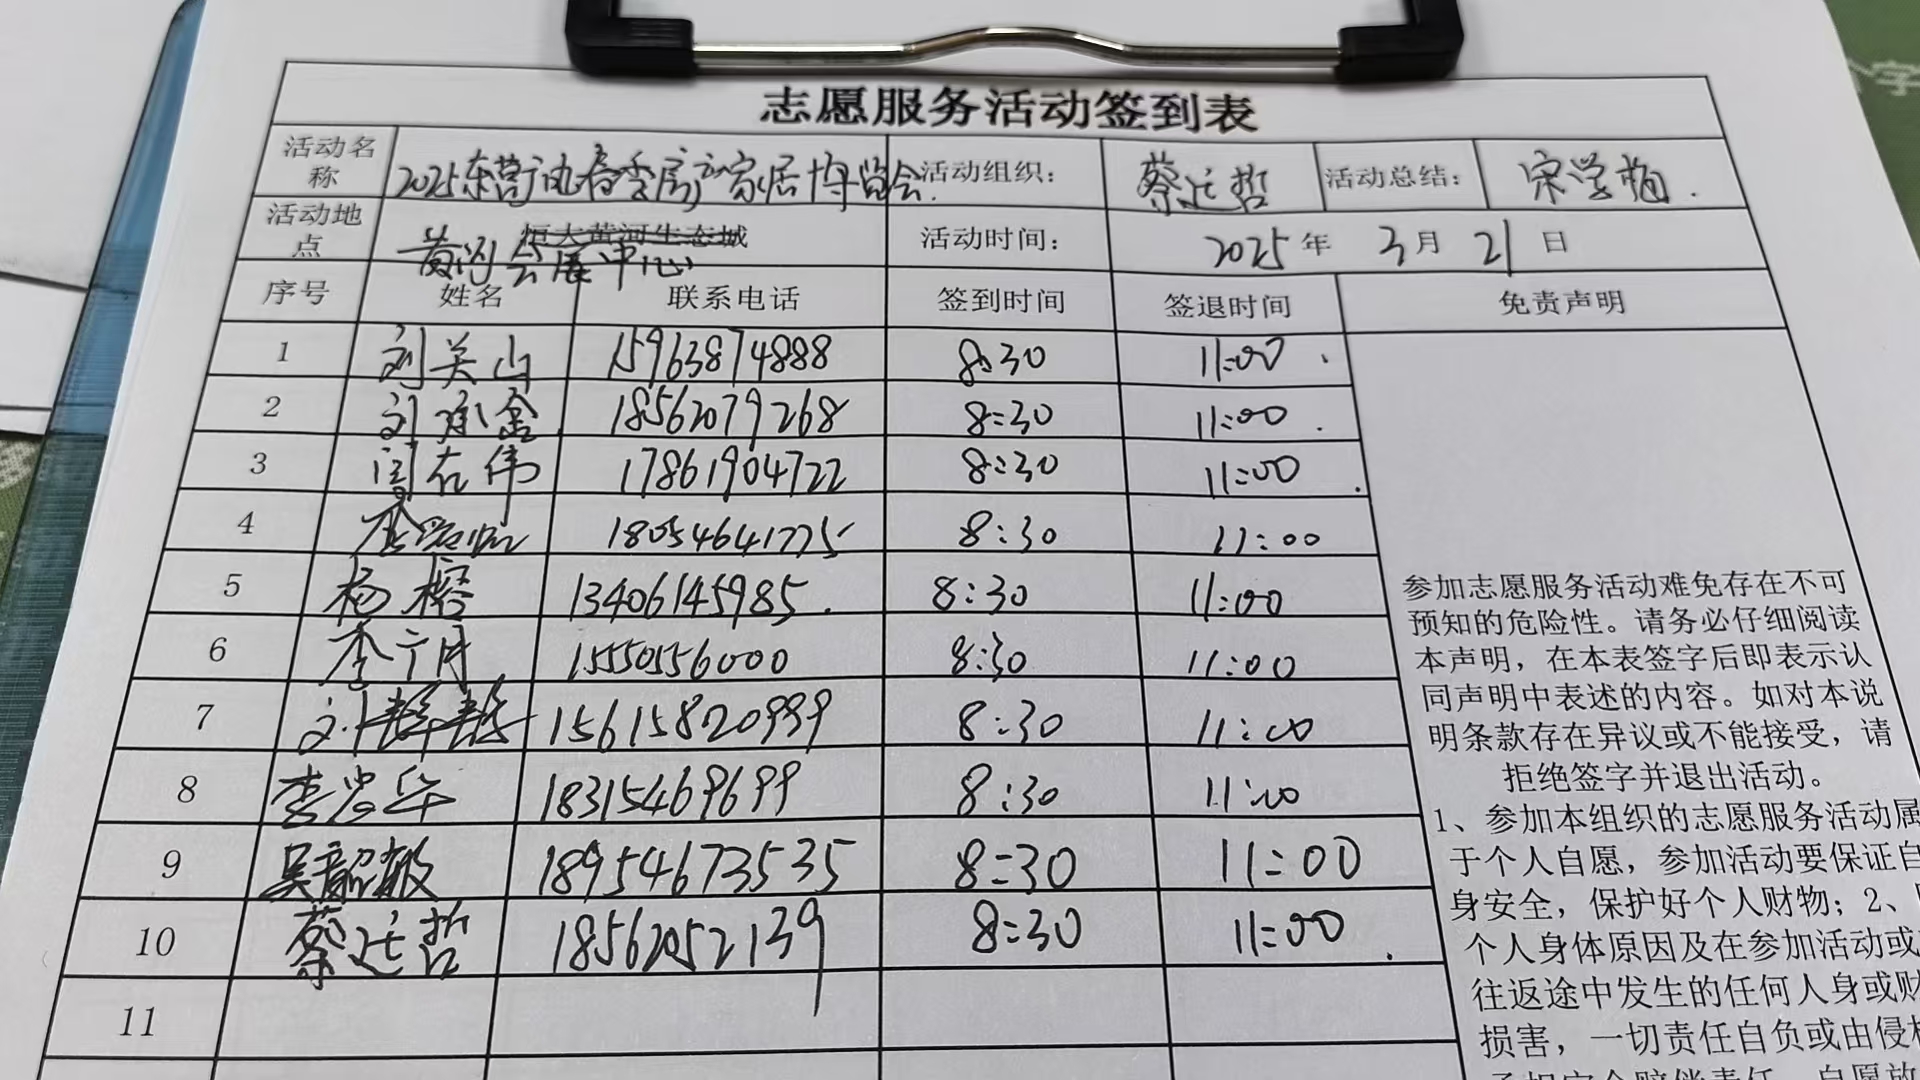 志愿服务活动签到表
活动名称 2025东营广饶春季房产家居博览会 活动组织： 蔡廷哲 活动总结： 宋学梅.
活动地点 恒大黄河生态城 黄河会展中心 活动时间： 2025 年 3 月 21 日
序号 姓名 联系电话 签到时间 签退时间 免责声明
1 刘关山 15963874888 8:30 11:00
2 刘 18562079268 8:30 11:00
3 在伟 17861904722 8:30 11:00
4 18054641775 8:30 11:00
5 杨榕 13406145985 8:30 11:00
6 李月 15550556000 8:30 11:00
7 刘 15615820999 8:30 11:00
8 李岩华 18315469699 8:30 11:00
9 吴韶敏 18954673535 8:30 11:00
10 蔡廷哲 18562052139 8:30 11:00
11
参加志愿服务活动难免存在不可
预知的危险性。请务必仔细阅读
本声明，在本表签字后即表示认
同声明中表述的内容。如对本说
明条款存在异议或不能接受，请
拒绝签字并退出活动。
1、参加本组织的志愿服务活动属
于个人自愿，参加活动要保证自
身安全，保护好个人财物；2、
个人身体原因及在参加活动或
往返途中发生的任何人身或财
损害，一切责任自负或由侵权